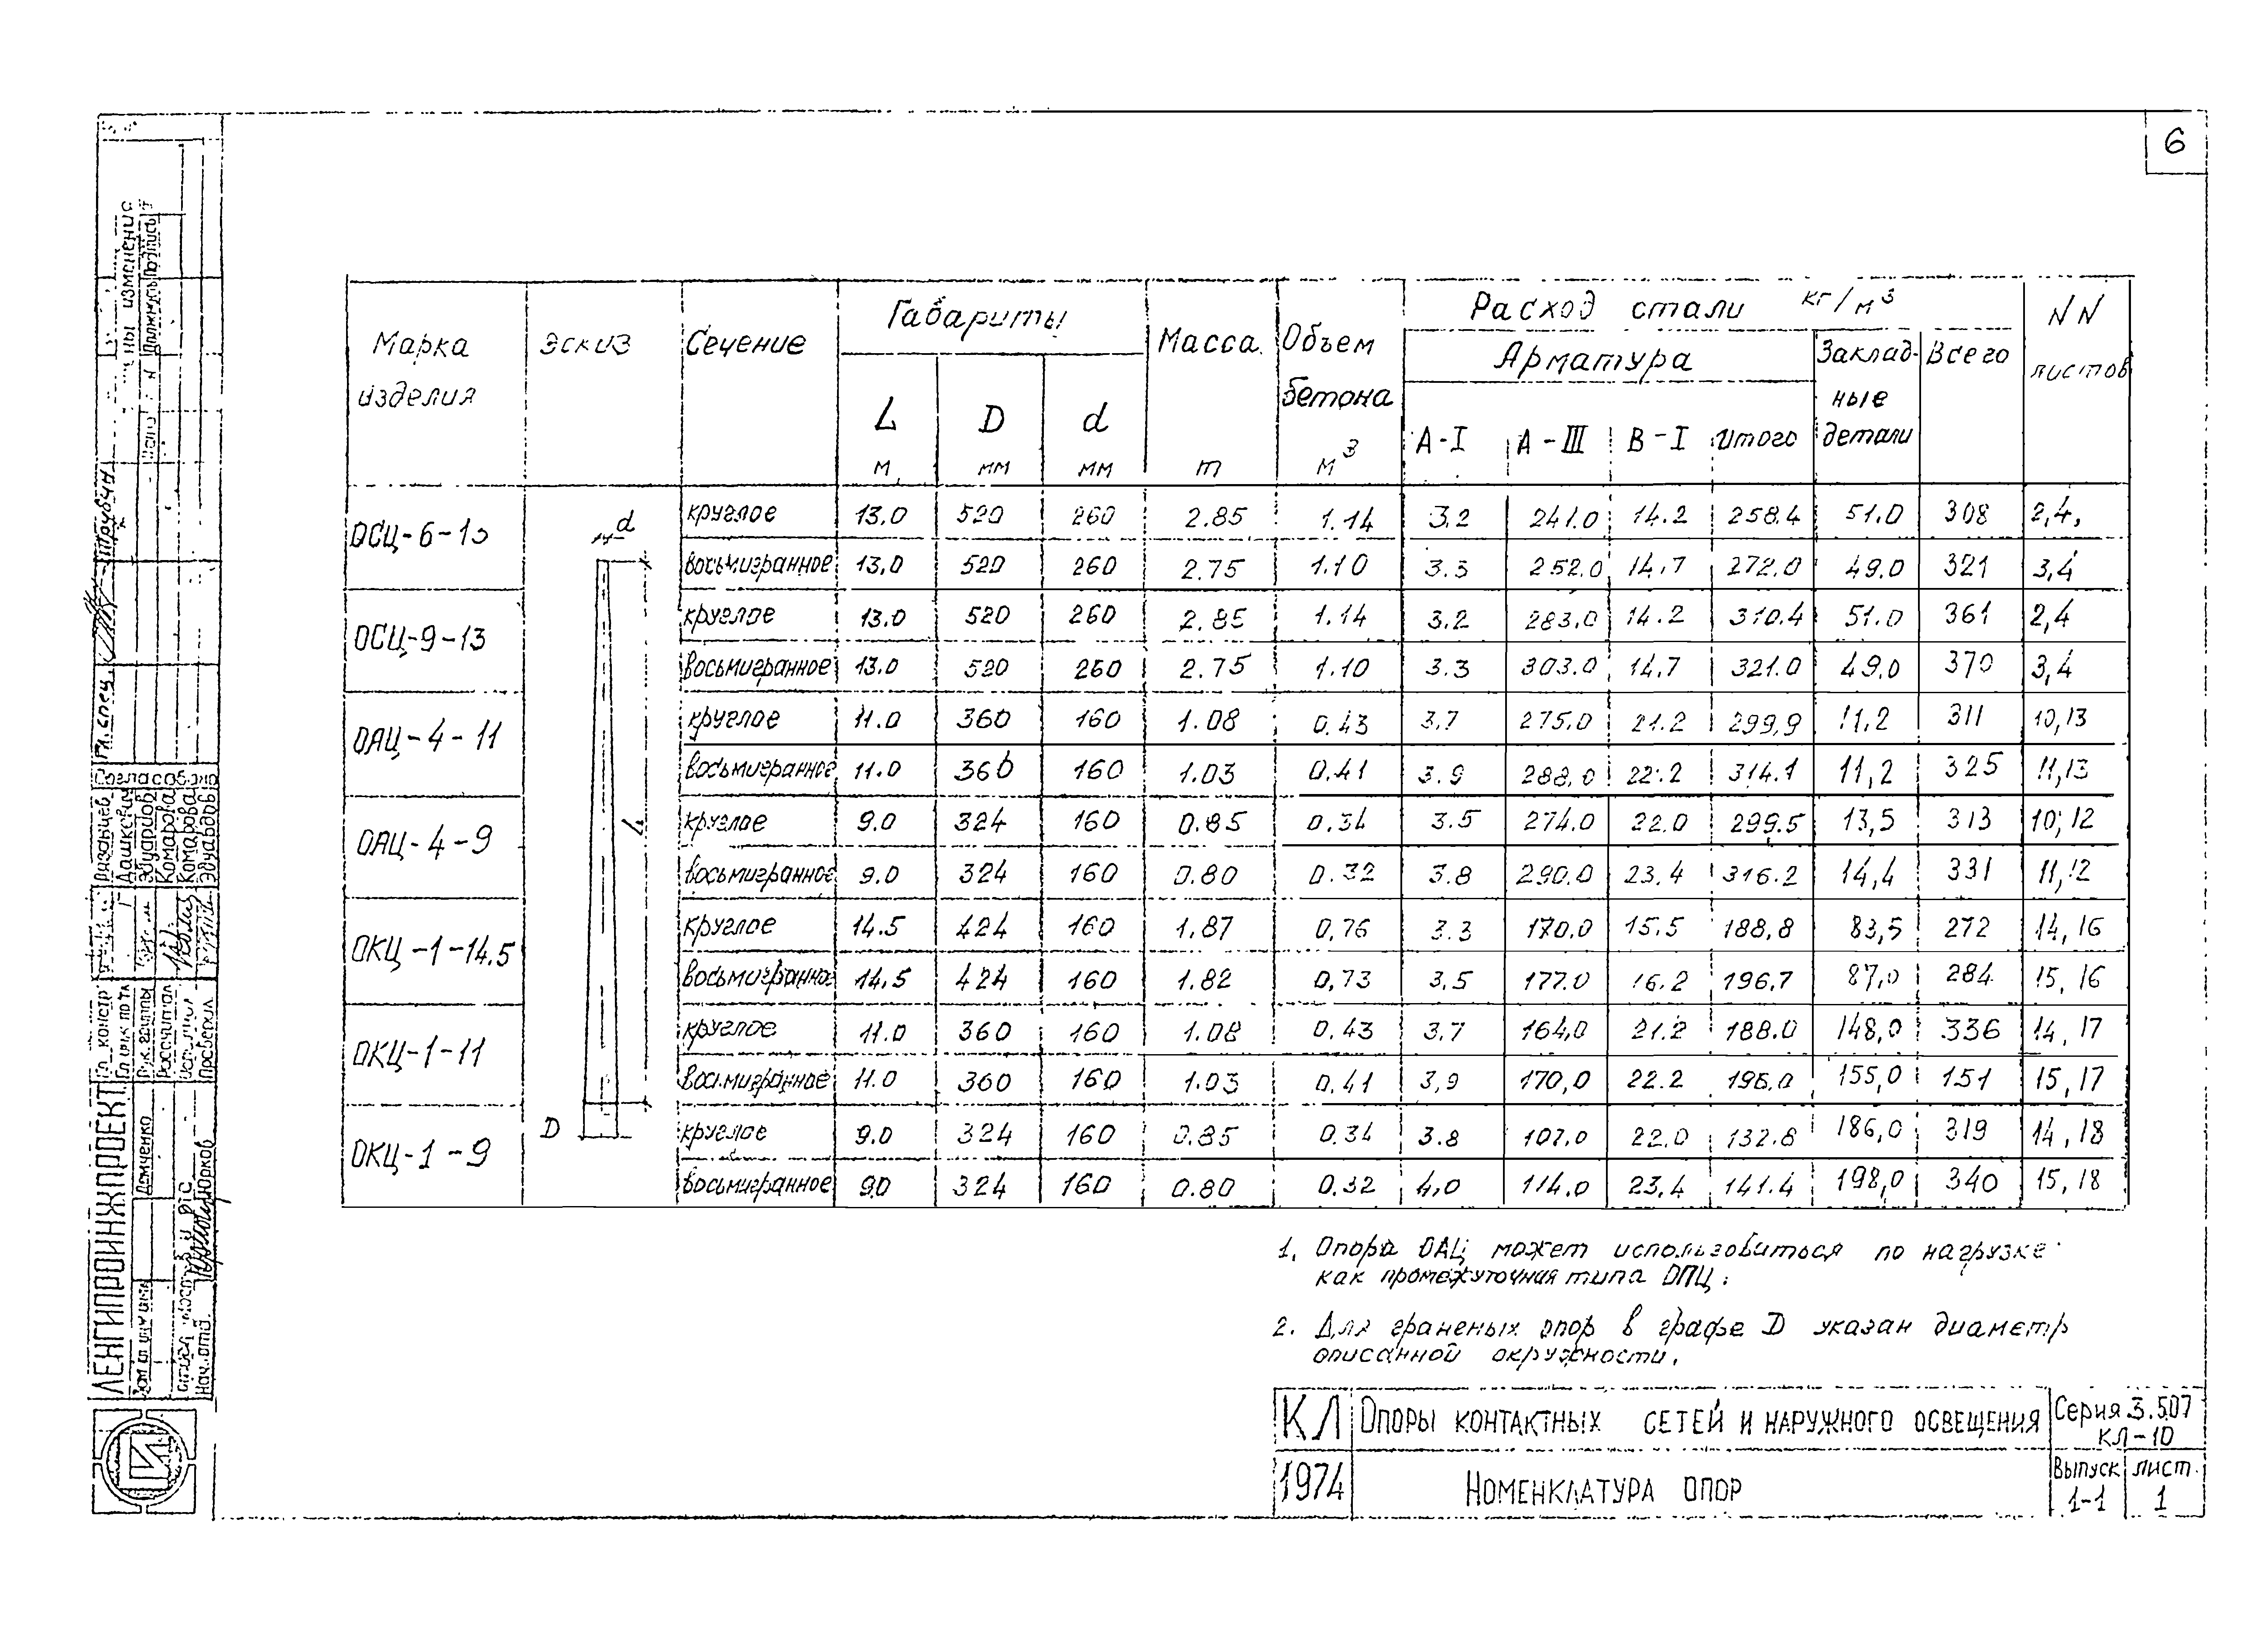 6
Марка изделия | Эскиз | Сечение | Габариты | Масса | Объем бетона | Расход стали кг/м³ | NN листов
Арматура | Закладные детали | Всего
L м | D мм | d мм | т | м³ | А-I | А-III | В-I | Итого
ОСЦ-6-13 | круглое | 13.0 | 520 | 260 | 2.85 | 1.14 | 3.2 | 241.0 | 14.2 | 258.4 | 51.0 | 308 | 2,4,
восьмигранное | 13,0 | 520 | 260 | 2.75 | 1.10 | 3.3 | 252.0 | 14.7 | 272.0 | 49.0 | 321 | 3,4
ОСЦ-9-13 | круглое | 13.0 | 520 | 260 | 2.85 | 1.14 | 3.2 | 283.0 | 14.2 | 310.4 | 51.0 | 361 | 2,4
восьмигранное | 13.0 | 520 | 260 | 2.75 | 1.10 | 3.3 | 303.0 | 14.7 | 321.0 | 49.0 | 370 | 3,4
ОАЦ-4-11 | круглое | 11.0 | 360 | 160 | 1.08 | 0.43 | 3.7 | 275.0 | 21.2 | 299,9 | 11.2 | 311 | 10,13
восьмигранное | 11.0 | 360 | 160 | 1.03 | 0.41 | 3.9 | 288,0 | 22.2 | 314.1 | 11,2 | 325 | 11,13
ОАЦ-4-9 | круглое | 9.0 | 324 | 160 | 0.85 | 0.34 | 3.5 | 274.0 | 22.0 | 299.5 | 13,5 | 313 | 10,12
восьмигранное | 9.0 | 324 | 160 | 0.80 | 0.32 | 3.8 | 290.0 | 23.4 | 316.2 | 14,4 | 331 | 11,12
ОКЦ-1-14.5 | круглое | 14.5 | 424 | 160 | 1.87 | 0,76 | 3.3 | 170.0 | 15.5 | 188,8 | 83,5 | 272 | 14,16
восьмигранное | 14.5 | 424 | 160 | 1.82 | 0,73 | 3.5 | 177.0 | 16.2 | 196,7 | 87,0 | 284 | 15,16
ОКЦ-1-11 | круглое | 11.0 | 360 | 160 | 1.08 | 0.43 | 3.7 | 164,0 | 21.2 | 188.0 | 148,0 | 336 | 14,17
восьмигранное | 11.0 | 360 | 160 | 1.03 | 0.41 | 3,9 | 170,0 | 22.2 | 196.0 | 155,0 | 151 | 15,17
ОКЦ-1-9 | круглое | 9.0 | 324 | 160 | 0.85 | 0.34 | 3.8 | 107.0 | 22.0 | 132.8 | 186,0 | 319 | 14,18
восьмигранное | 9.0 | 324 | 160 | 0.80 | 0.32 | 4,0 | 114.0 | 23,4 | 141.4 | 198,0 | 340 | 15,18
d
L
D
1. Опора ОАЦ может использоваться по нагрузке
как промежуточная типа ОПЦ.
2. Для граненых опор в графе D указан диаметр
описанной окружности.
КЛ | Опоры контактных сетей и наружного освещения | Серия 3.507
КЛ-10
1974 | Номенклатура опор | Выпуск 1-1 | лист. 1
ЛЕНГИПРОИНЖПРОЕКТ
Согласовано
Гл. спец.
Трубчин
Дашкевич
Эдуардов
Комарова
Комарова
Эдуардов
Гл. констр
Рук. группы
Рассчитал
Проверил
Демченко
Нач. отд.
Юрков
Должность
Подпись